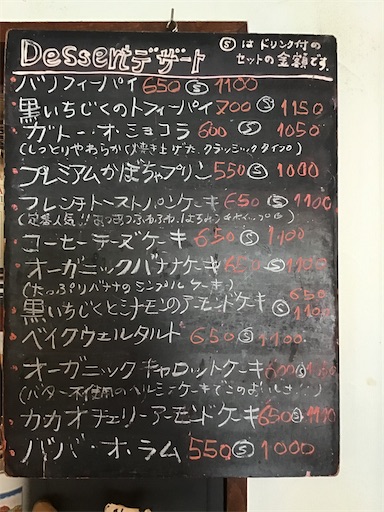 Dessertデザート
Ⓢはドリンク付の
セットの金額です。
バノフィーパイ 650 Ⓢ 1100
黒いちじくのトフィーパイ 700 Ⓢ 1150
ガトー・オ・ショコラ 600 Ⓢ 1050
(しっとりやわらかく焼き上げた、クラッシックタイプ。)
プレミアムかぼちゃプリン 550 Ⓢ 1000
フレンチトーストパンケーキ 650 Ⓢ 1100
(定番人気!! あつあつふわふわ、はちみつ
コーヒーチーズケーキ 650 Ⓢ 1100
オーガニックバナナケーキ 650 Ⓢ 1100
(たっぷりバナナのシンプルケーキ。)
黒いちじくとシナモンのアーモンドケーキ 650 Ⓢ 1100
ベイクウェルタルト 650 Ⓢ 1100
オーガニックキャロットケーキ 600 Ⓢ
(バター不使用のヘルシーケーキでこのおいしさ・・・)
カカオチェリーアーモンドケーキ 650 Ⓢ 1100
ババ・オ・ラム 550 Ⓢ 1000